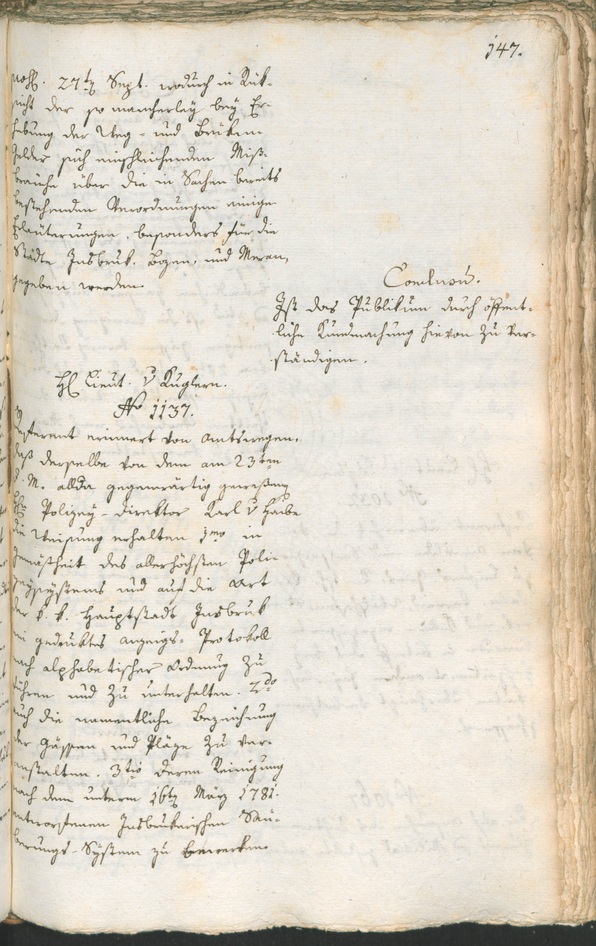 147.
27ten Sept. wodurch in Rük-
sicht der so mancherley bey Er-
hebung der Weg- und Brüken-
gelder sich einschleichenden Miß-
bräuche über die in Sachen bereits
bestehenden Verordnungen einige
Erläuterungen, besonders für die
Städte Insbruk, Bozen, und Meran,
gegeben werden.
Conclusū.
Ist das Publikum durch öffent-
liche Kundmachung hievon zu ver-
ständigen.
H. Lieut. v Kuglern.
No 1137.
Referent erinnert von Amtswegen,
daß derselbe von dem am 23ten
d. M. allda gegenwärtig gewesenen
Polizey-Direktor Carl v
die Weisung erhalten 1mo in
Gemäßheit des allerhöchsten Poli-
zeysystems und auf die Art
der k. k. Hauptstadt Insbruk
ein gedruktes Anzeigs-Protokoll
nach alphabetischer Ordnung zu
führen und zu unterhalten. 2do
auch die namentliche Bezeichnung
der Gässen und Pläze zu ver-
anstalten. 3tio deren Reinigung
nach dem unterm 16ten März 1781.
entworfenen Insbrukerischen Säu-
berungs-System zu bewerken